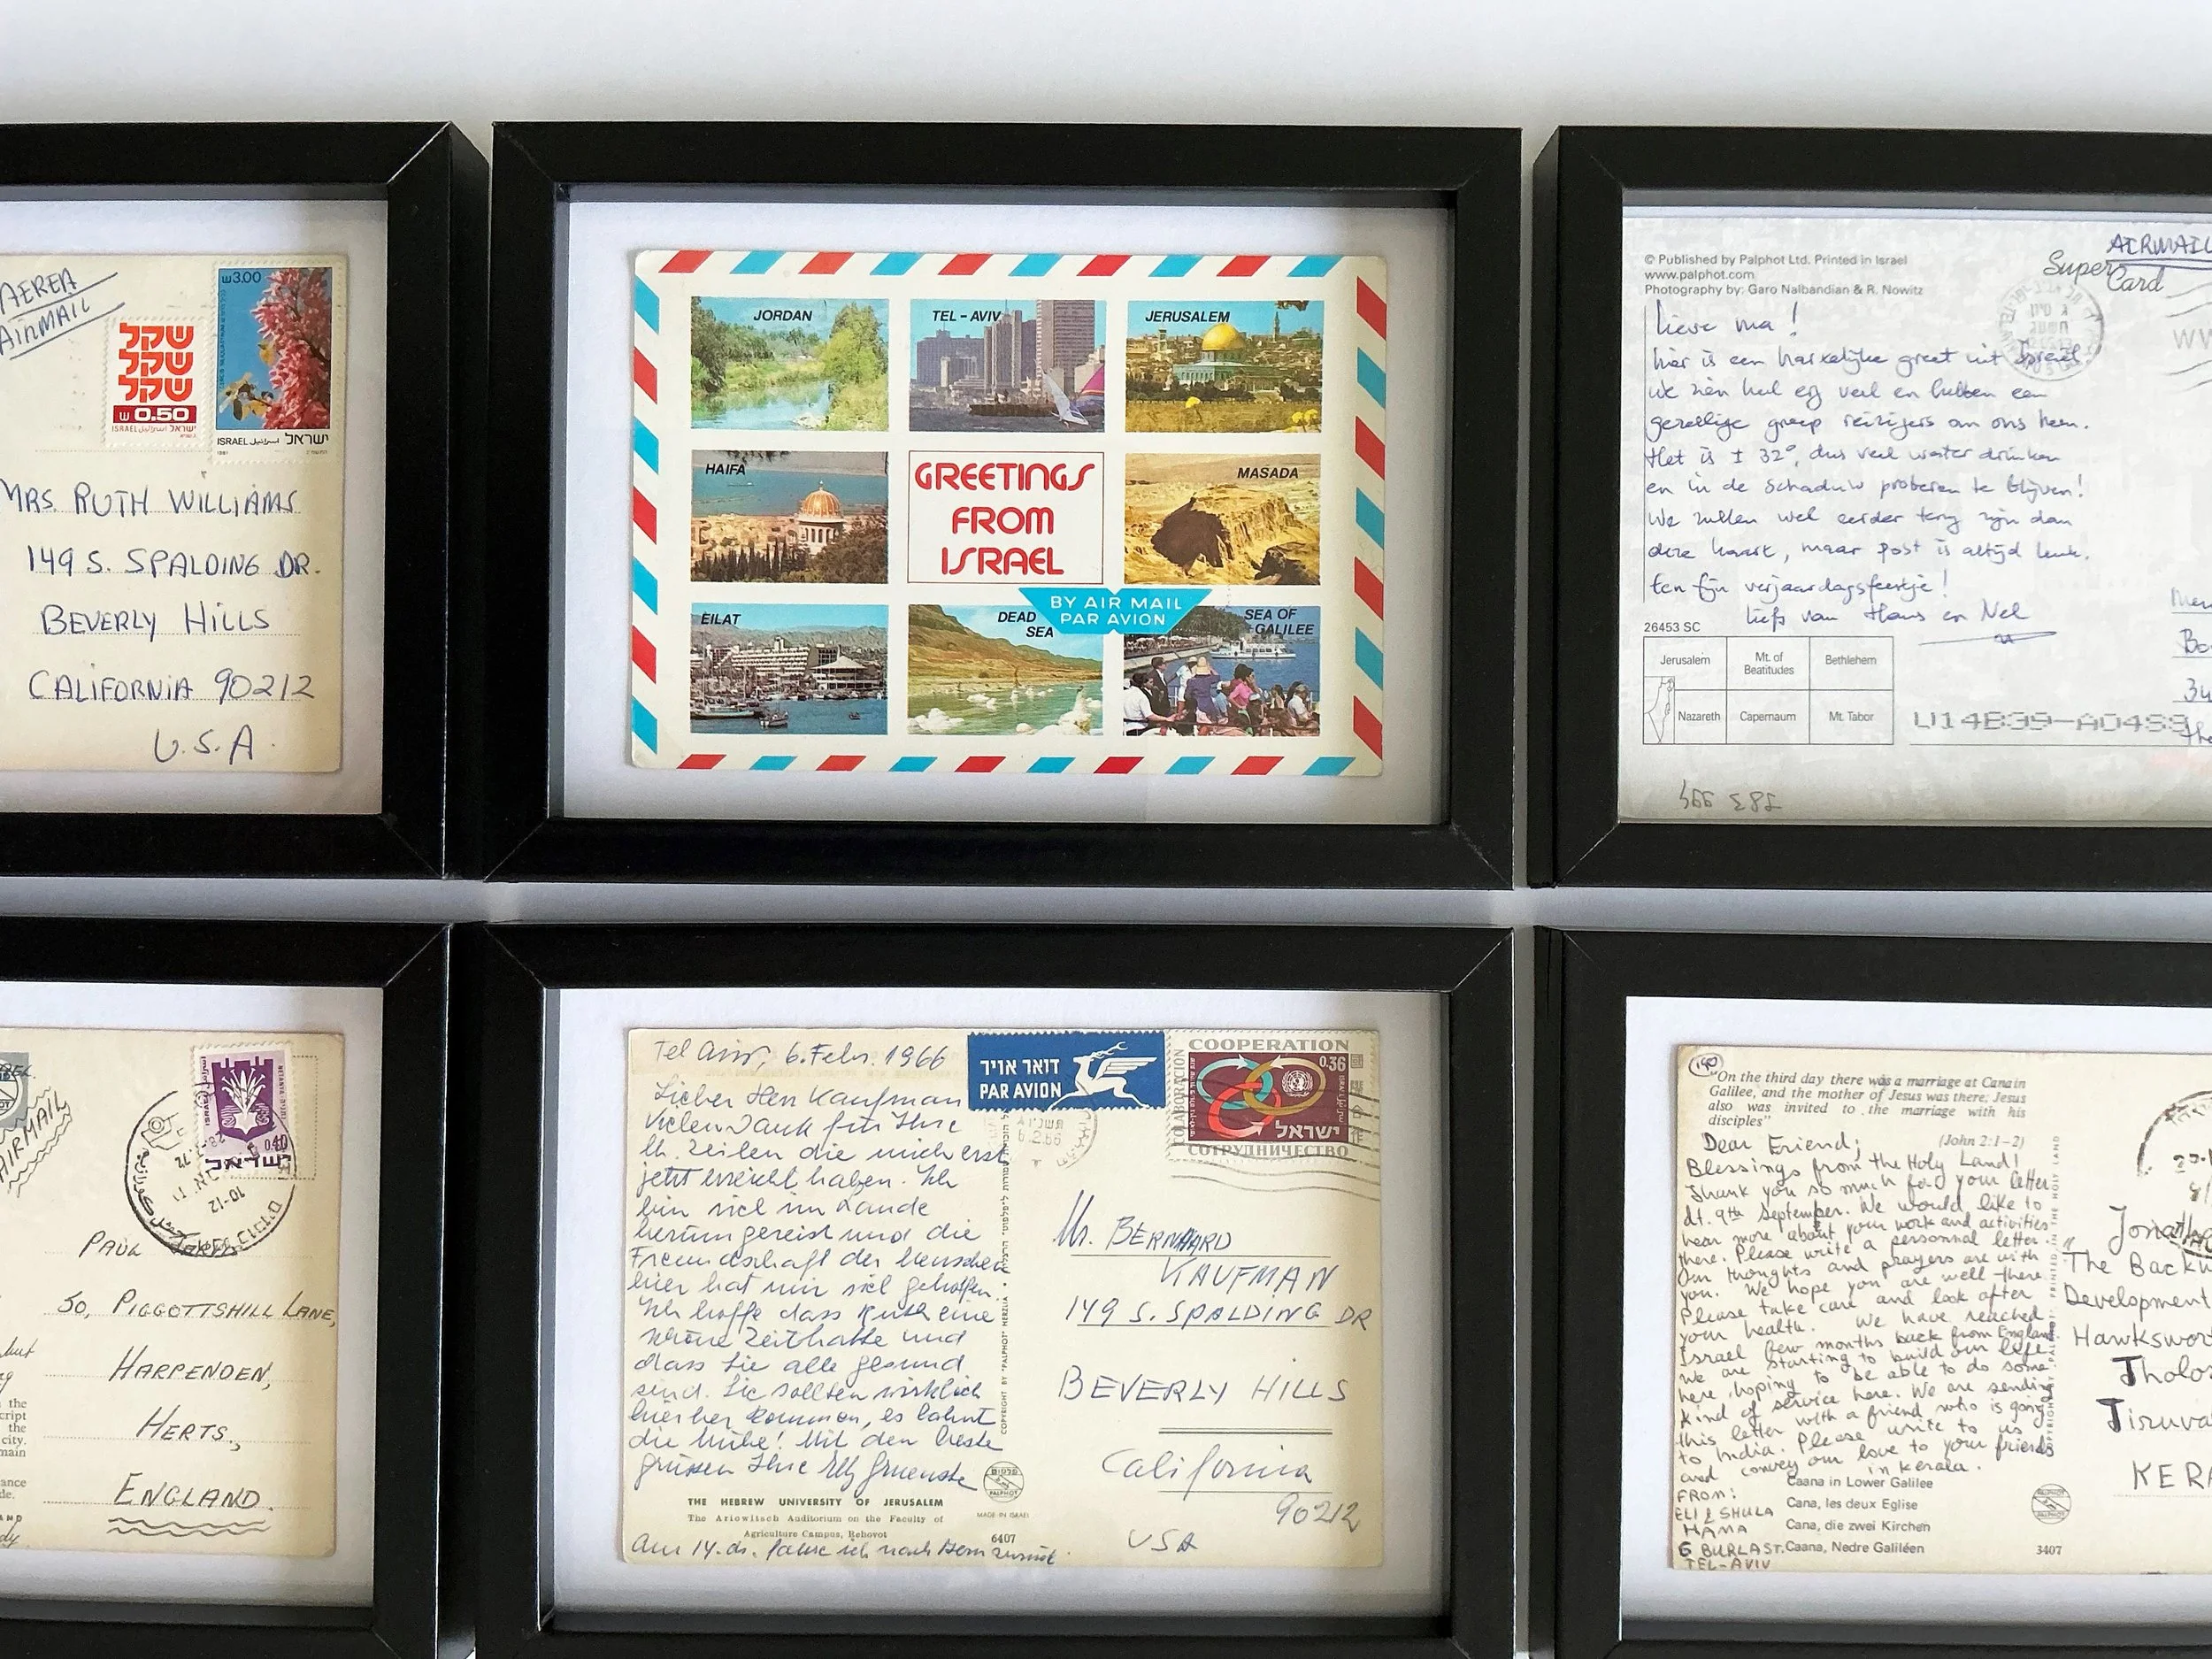 AEREA
AIRMAIL
₪3.00
שקל
שקל
שקל
₪ 0.50
ISRAEL اسرائيل ישראל
ISRAEL اسرائيل ישראל
1981
MRS. RUTH WILLIAMS
149 S. SPALDING DR.
BEVERLY HILLS
CALIFORNIA 90212
U.S.A.
JORDAN
TEL-AVIV
JERUSALEM
HAIFA
GREETINGS
FROM
ISRAEL
MASADA
BY AIR MAIL
PAR AVION
EILAT
DEAD
SEA
SEA OF
GALILEE
AIRMAIL
© Published by Palphot Ltd. Printed in Israel
www.palphot.com
Photography by: Garo Nalbandian & R. Nowitz
Super
Card
Lieve ma!
hier is een hartelijke groet uit Israël
We zien heel erg veel en hebben een
gezellige groep reizigers om ons heen.
Het is ± 32°, dus veel water drinken
en in de schaduw proberen te blijven!
We zullen wel eerder terug zijn dan
deze kaart, maar post is altijd leuk.
Een fijn verjaardagsfeestje!
liefs van Hans en Nel
26453 SC
Jerusalem
Mt. of
Beatitudes
Bethlehem
Nazareth
Capernaum
Mt. Tabor
AIRMAIL
0.40
ישראל
10-12
PAUL
50, PIGGOTTSHILL LANE,
HARPENDEN,
HERTS.,
ENGLAND.
the
cript
the
city.
main
ance
de.
AND
Tel Aviv, 6. Febr. 1966
Lieber Herr Kaufman
Vielen Dank für Ihre
lb. Zeilen die mich erst
jetzt erreicht haben. Ich
bin viel im Lande
herumgereist und die
Freundschaft der Menschen
hier hat mir viel geholfen.
Ich hoffe dass Ruth eine
schöne Zeit hatte und
dass Sie alle gesund
sind. Sie sollten wirklich
hierher kommen, es lohnt
die Mühe! Mit den beste
grüssen Ihre Elly
THE HEBREW UNIVERSITY OF JERUSALEM
The Ariowitsch Auditorium on the Faculty of
Agriculture Campus, Rehovot
6407
MADE IN ISRAEL
פלפוט
PALPHOT
Am 14. ds. fahre ich nach Bern zurück.
COPYRIGHT BY "PALPHOT" HERZLIA
דואר אויר
PAR AVION
COOPERATION
COLABORACION
0.36
ישראל
СОТРУДНИЧЕСТВО
6.2.66
Mr. BERNHARD
KAUFMAN
149 S. SPALDING DR
BEVERLY HILLS
California
90212
USA
190
"On the third day there was a marriage at Cana in
Galilee, and the mother of Jesus was there; Jesus
also was invited to the marriage with his
disciples"
(John 2:1-2)
Dear Friend;
Blessings from the Holy Land!
Thank you so much for your letter
dt. 9th September. We would like to
hear more about your work and activities
there. Please write a personnal letter.
Our thoughts and prayers are with
you. We hope you are well there.
Please take care and look after
your health. We have reached
Israel few months back from England.
We are starting to build our life
here, hoping to be able to do some
kind of service here. We are sending
this letter with a friend who is going
to India. Please write to us
and convey our love to your friends
in Kerala.
FROM:
ELI & SHULA
HAMA
6 BURLA ST.
TEL-AVIV
Caana in Lower Galilee
Cana, les deux Eglise
Cana, die zwei Kirchen
Caana, Nedre Galiléen
3407
PRINTED IN THE HOLY LAND
The Backw
Development
Hawkswor
Tholo
Tiruva
KER